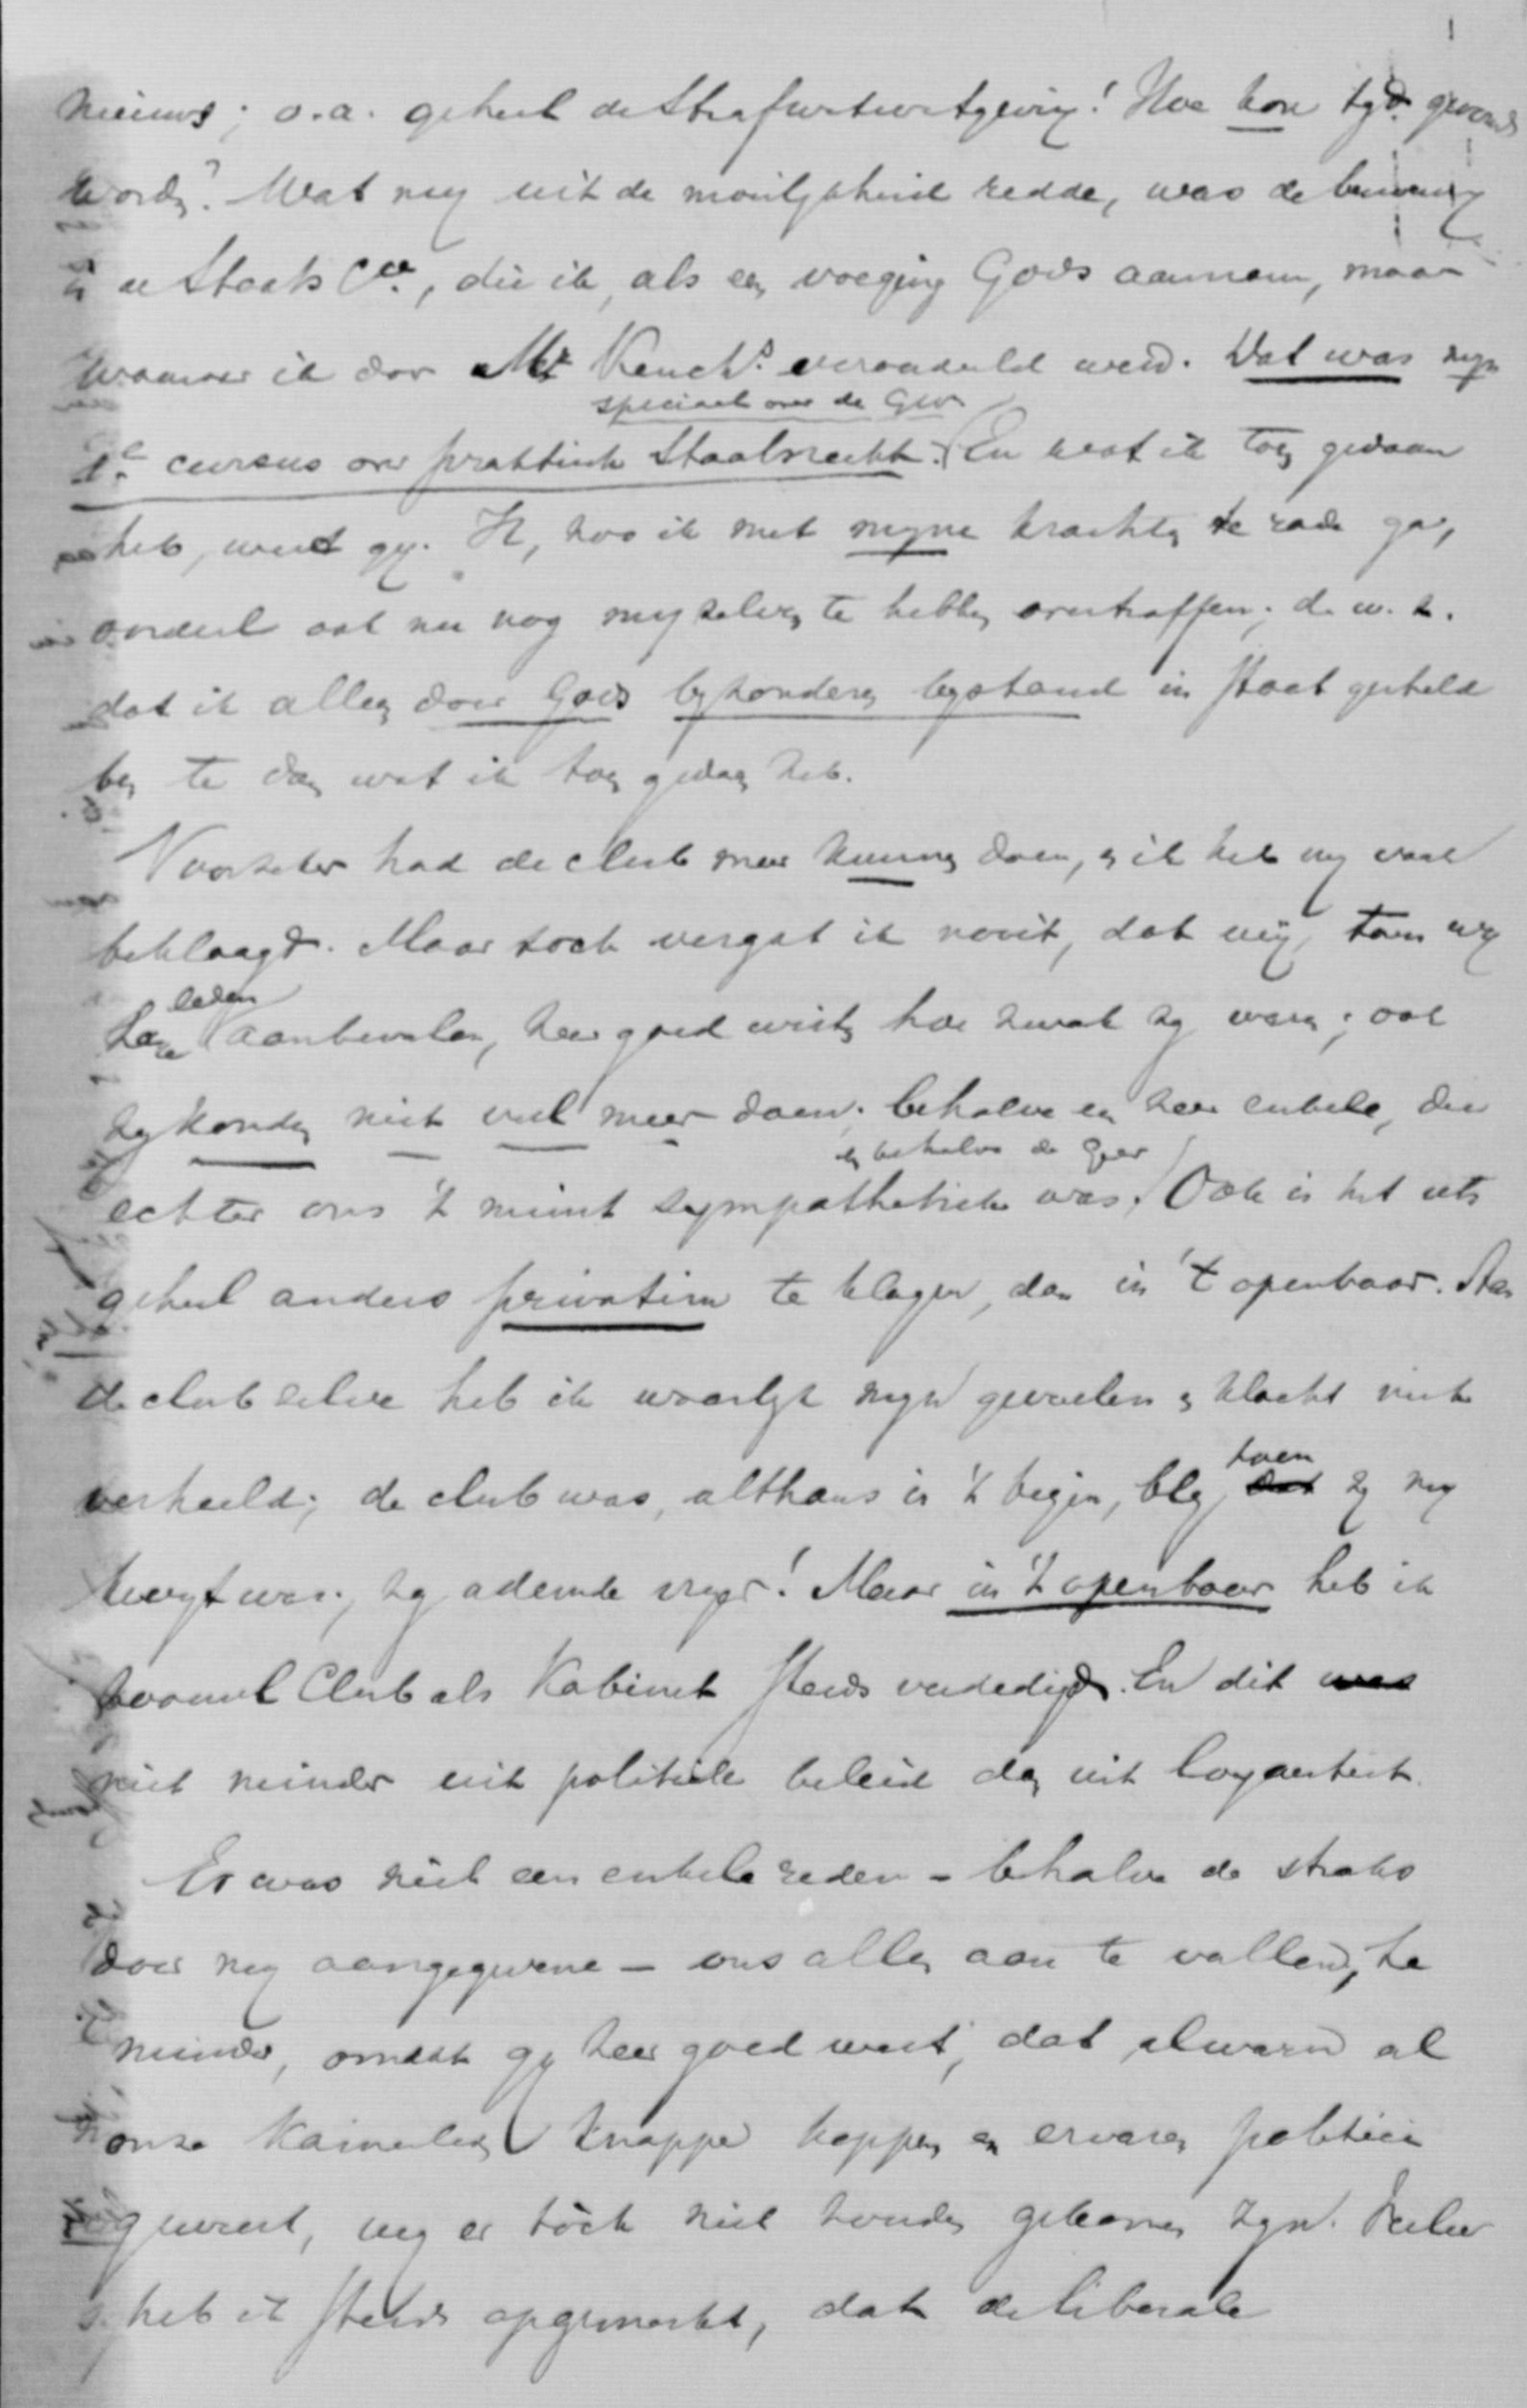 nieuws; o.a. geheel de Strafwetwetgeving! Hoe kon tyd gevonden
worden? Wat my uit de moeilykheid redde, was de benoeming
in de Staats Cie, die ik, als een voeging Gods aannam, maar
waarover ik door Mr Keuch.s veroordeeld werd. Dat was myn
speciaal over de Grw
1e cursus over praktisch Staatsrecht. En wat ik toen gedaan
heb, weet gy. Ik, zoo ik met myne krachten te rade ga,
oordeel ook nu nog myzelven te hebben overtroffen; d.w.z.
dat ik alleen door Gods byzonderen bystand in staat gesteld
ben te doen wat ik toen gedaan heb.
Voorzeker had de club meer kunnen doen, en ik heb my vaak
beklaagd. Maar toch vergat ik nooit, dat wy, toen wy
leden
deze aanbevalen, zeer goed wisten hoe zwak zy waren; ook
zy konden niet veel meer doen; behalve een zeer enkele, die
en behalve de Geer
echter ons 't minst sympathetiek was. Ook is het iets
geheel anders privatim te klagen, dan in 't openbaar. Aan
de club zelve heb ik waarlyk myn gevoelen en klacht niet
verheeld; de club was, althans in 't begin, bly, toen
dat zy my
kwyt was; zy ademde vryer! Maar in 't openbaar heb ik
zoowel Club als Kabinet steeds verdedigd. En dit was
niet minder uit politiek beleid dan uit loyauteit.
Er was niet een enkele reden - behalve de straks
door my aangegevene - ons allen aan te vallen, te
minder, omdat gy zeer goed weet, dat, al waren al
onze Kamerleden knappe koppen en ervaren politici
geweest, wy er tòch niet zouden gekomen zyn.
heb ik steeds opgemerkt, dat de liberale